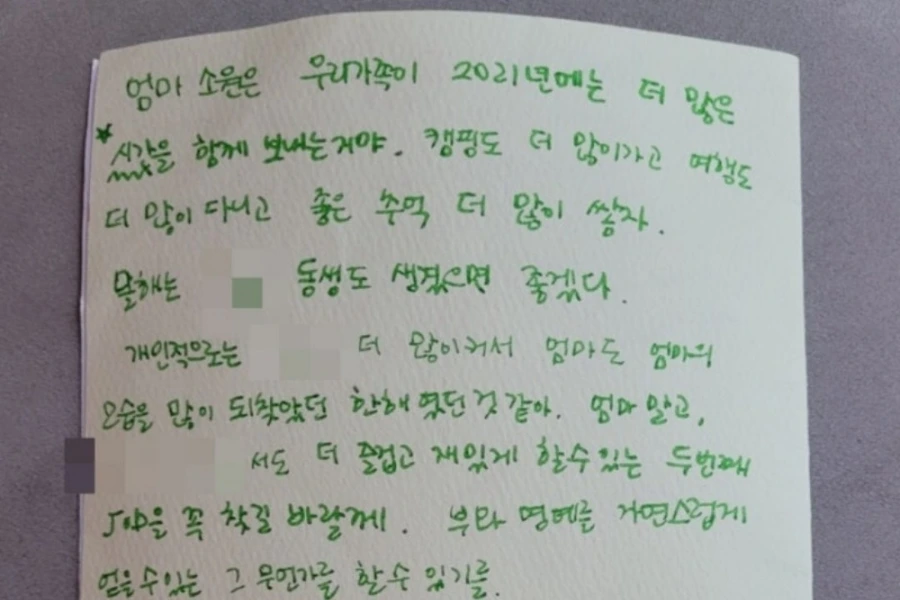 엄마 소원은 우리가족이 2021년에는 더 많은
*시간을 함께 보내는거야. 캠핑도 더 많이가고 여행도
더 많이 다니고 좋은 추억 더 많이 쌓자.
올해는 동생도 생겼으면 좋겠다.
개인적으로는 더 많이커서 엄마도 엄마의
모습을 많이 되찾았던 한해였던것 같아. 엄마 말고,
서도 더 즐겁고 재있게 할수있는 두번째
JOB을 꼭 찾길 바랄게. 부와 명예를 자연스럽게
얻을수있는 그 무언가를 할수 있기를.